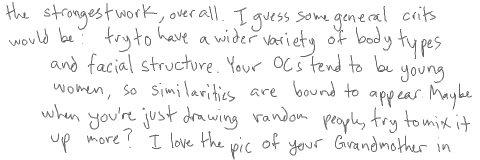 the strongest work, overall. I guess some general crits
would be: try to have a wider variety of body types
and facial structure. Your OCs tend to be young
women, so similarities are bound to appear. Maybe
when you're just drawing random people, try to mix it
up more? I love the pic of your Grandmother in